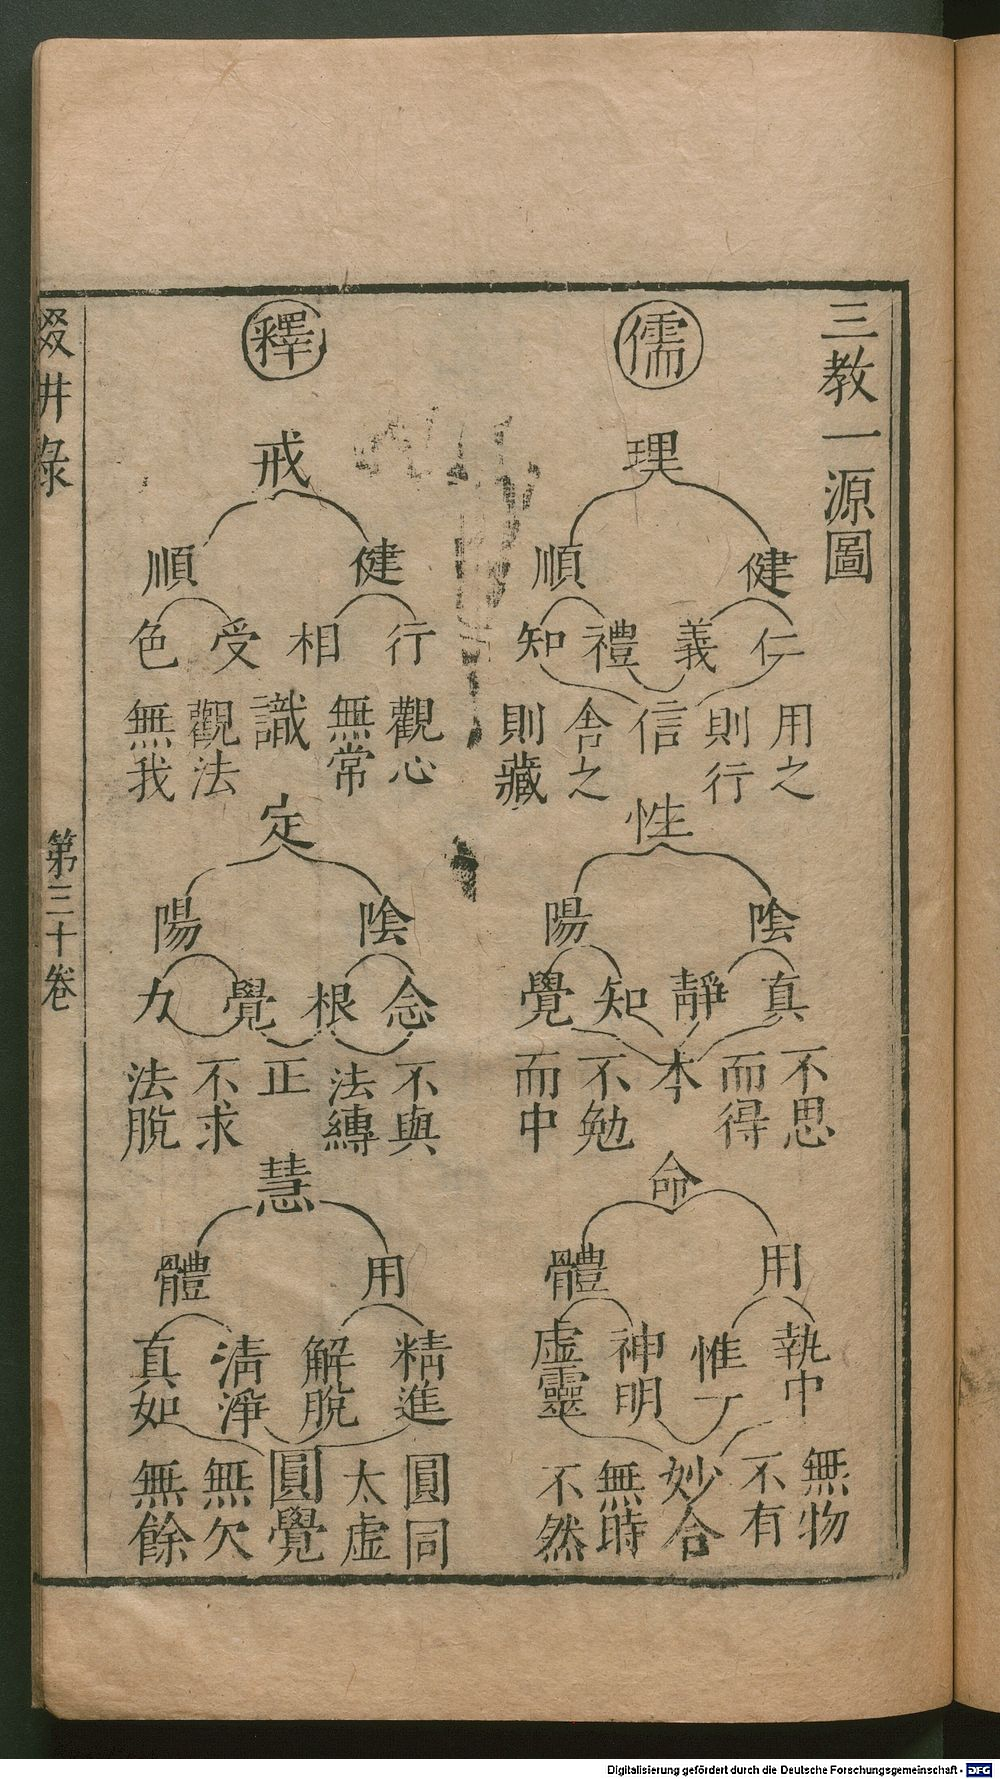 三教一源圖
儒
理
健 順
仁 義 禮 知
用之 則行 信 舍之 則藏
性
陰 陽
真 靜 知 覺
不思 而得 本 不勉 而中
命
用 體
執中 惟一 神明 虛靈
無物 不有 妙合 無時 不然
釋
戒
健 順
行 相 受 色
觀心 無常 識 觀法 無我
定
陰 陽
念 根 覺 力
不與 法縛 正 不求 法脫
慧
用 體
精進 解脫 清淨 真如
圓同 太虛 圓覺 無欠 無餘
輟畊錄
第三十卷
Digitalisierung gefördert durch die Deutsche Forschungsgemeinschaft - DFG